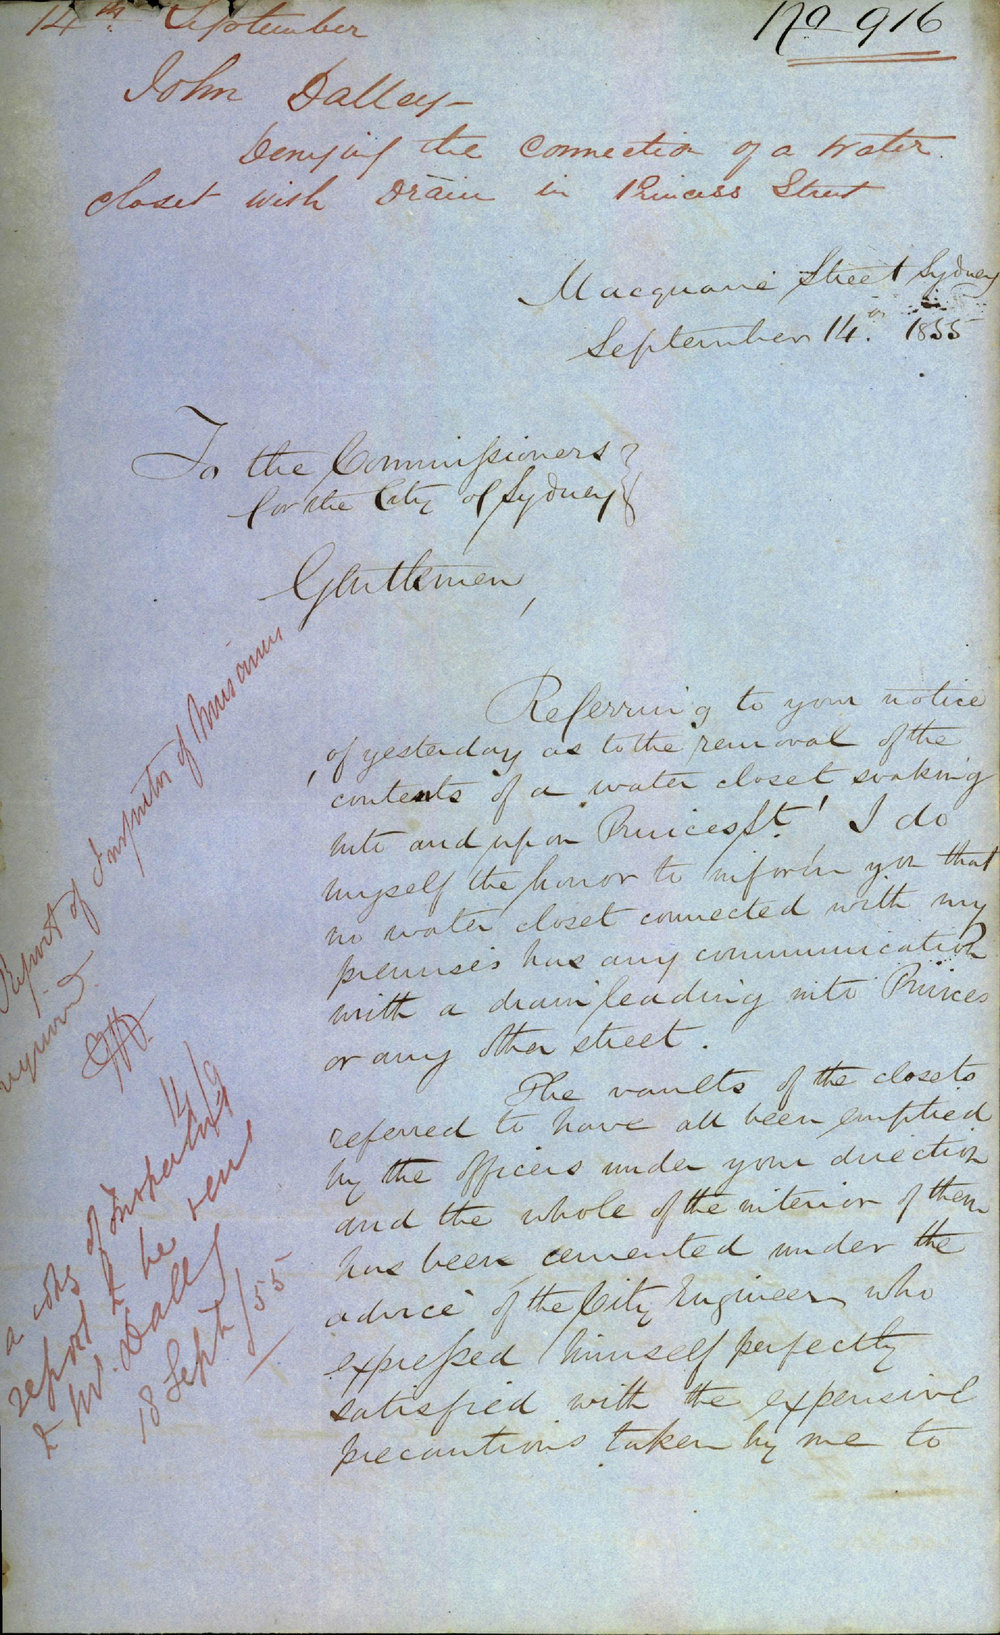 14th September
No 916
John Dalley -
Denying the Connection of a Water
closet with Drain in Princess Street
Macquarie Street Sydney
September 14th 1855
To the Commissioners
for the City of Sydney
Gentlemen,
Referring to your notice
of yesterday as to the removal of the
contents of a water closet soaking
into and upon Princes St! I do
myself the honor to inform you that
no water closet connected with my
premises has any communication
with a drain leading into Princes
or any other street.
The vaults of the closets
referred to have all been emptied
by the officers under your direction
and the whole of the interior of them
has been cemented under the
advice of the City Engineer who
expressed himself perfectly
satisfied with the expensive
precautions taken by me to
Report of Inspector of Nuisances
required
14/9
a copy of Inspector's
report to be sent
to Mr. Dalley
18 Sept/55